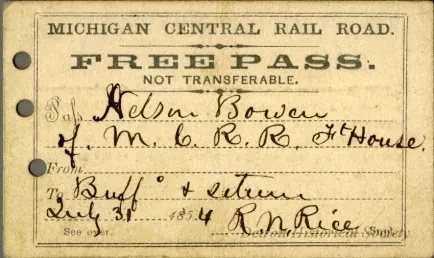 MICHIGAN CENTRAL RAIL ROAD.
FREE PASS.
NOT TRANSFERABLE.
Pass Nelson Bowen
of M. C. R. R. Ft House.
From
To Buffo & return
July 31 1854 R. N. Rice Supt.
See over. Detroit Historical Society